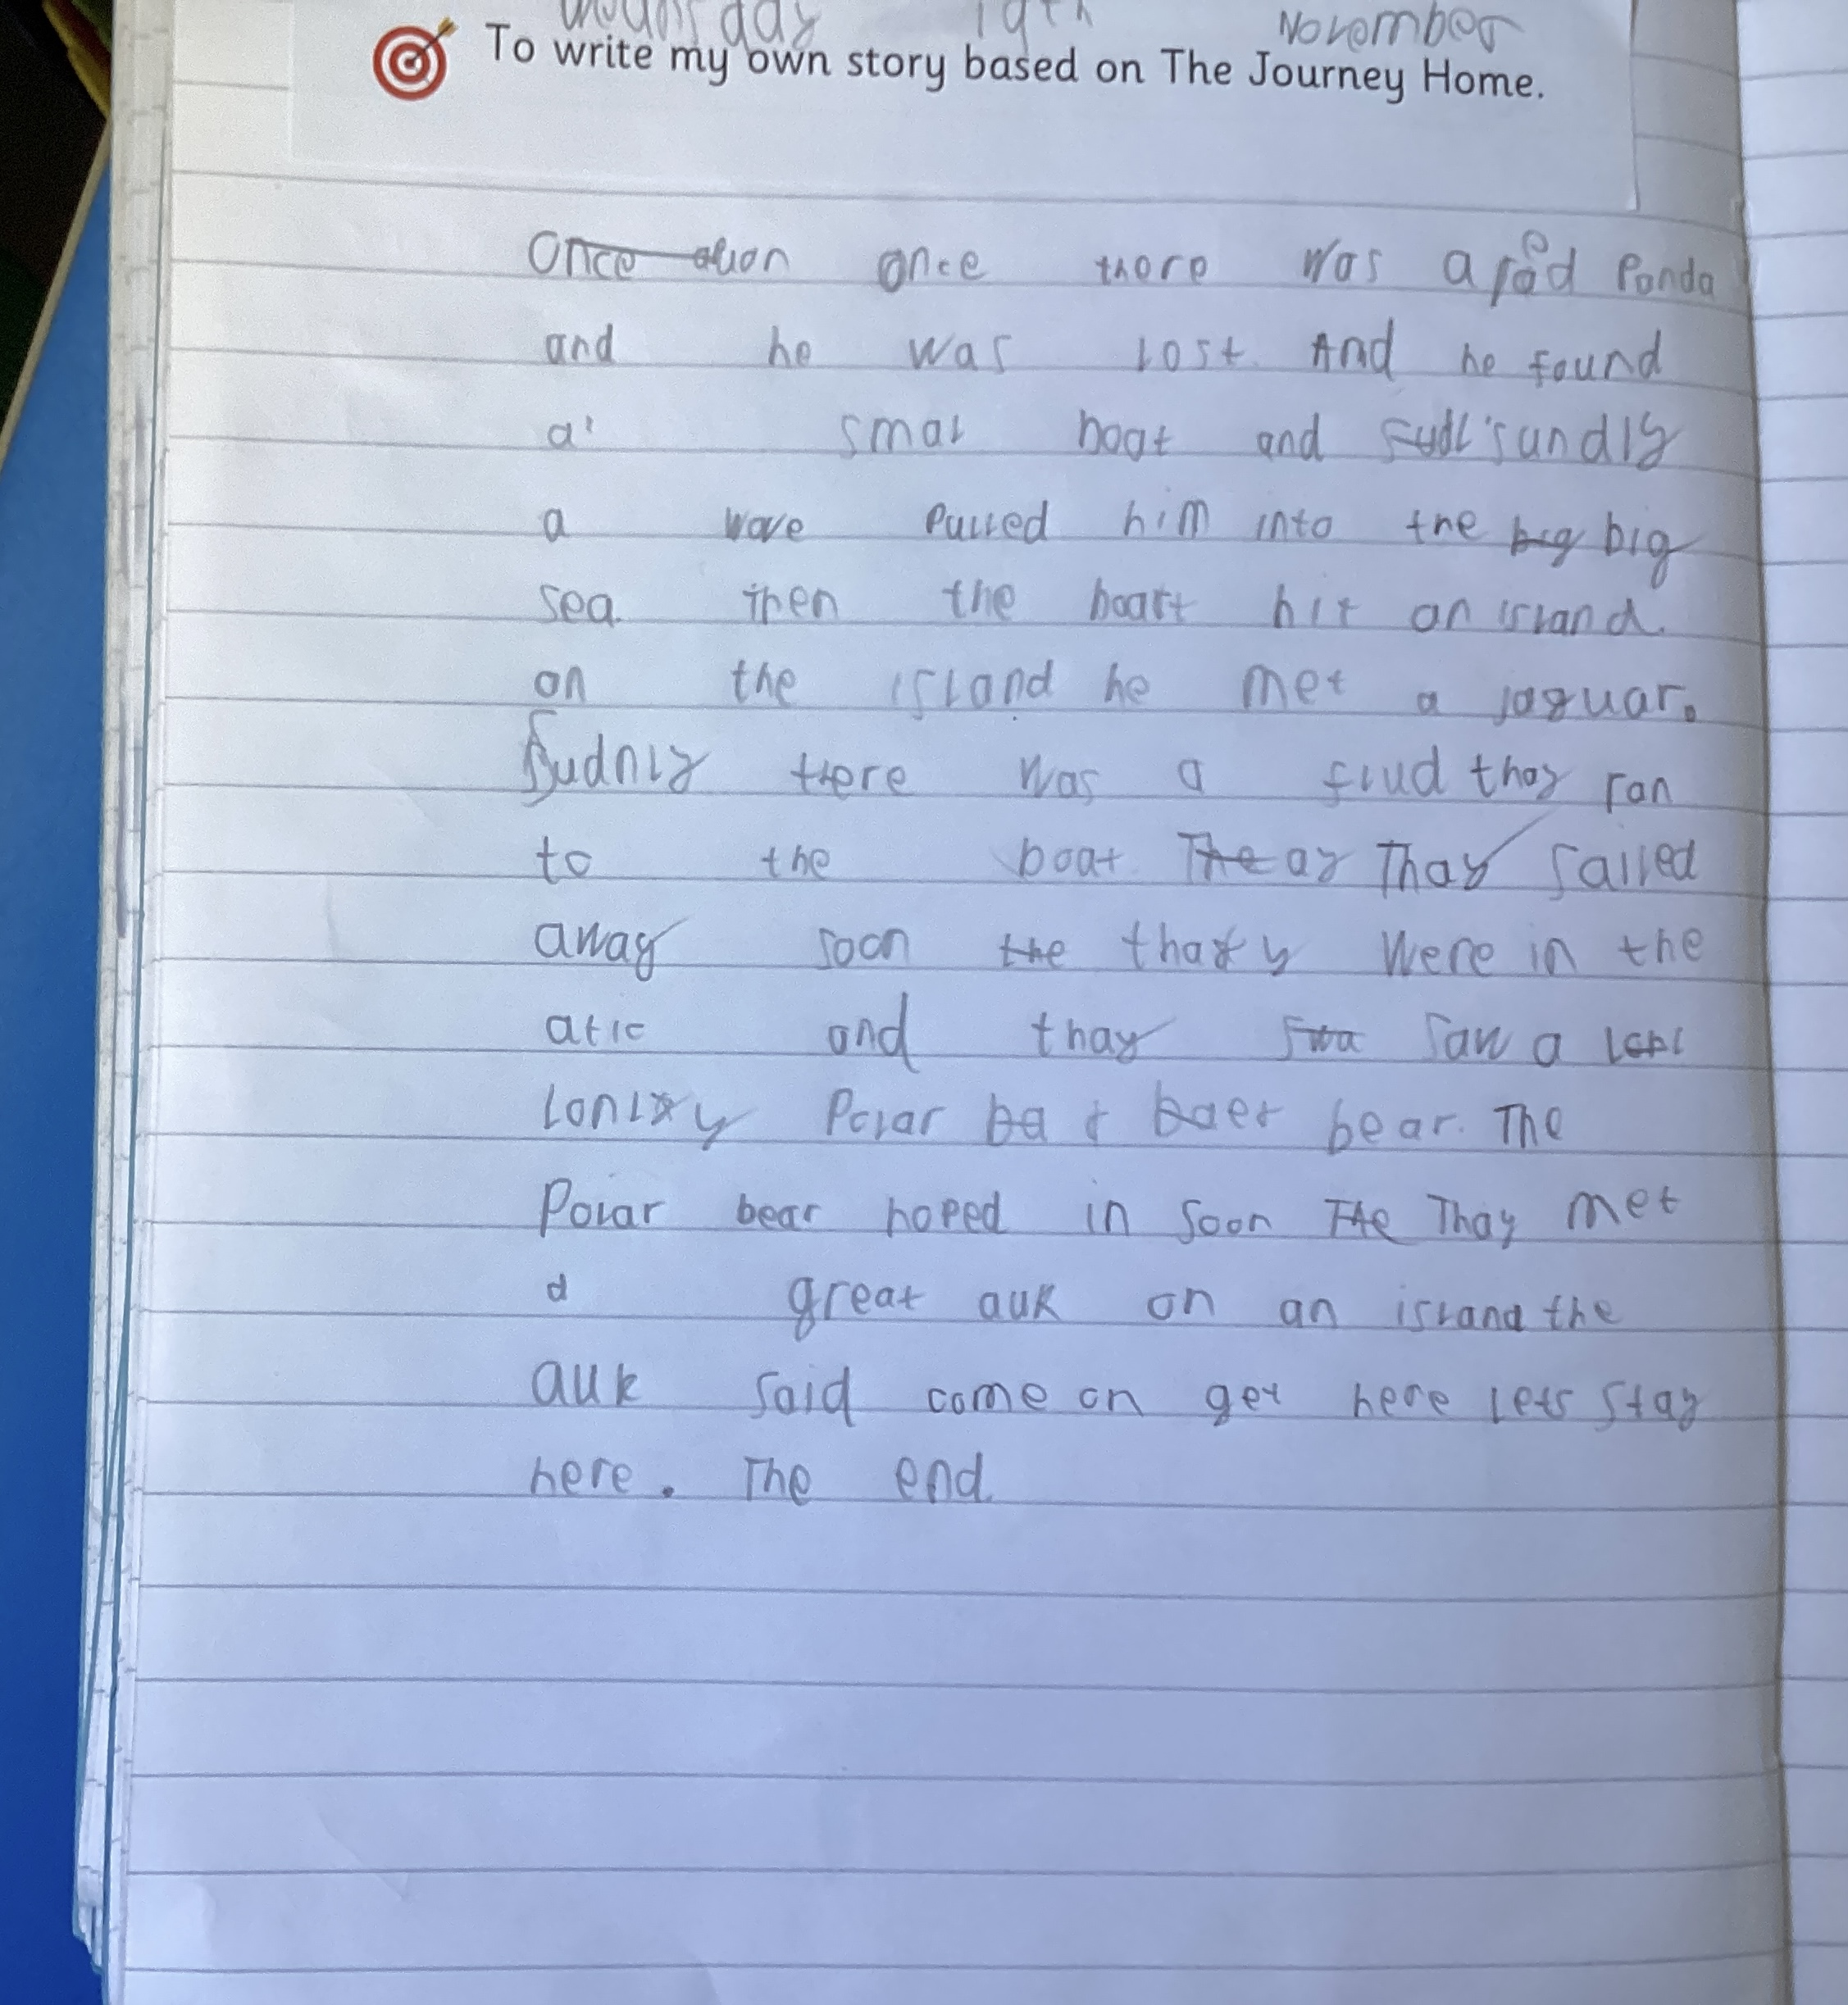 19th November
To write my own story based on The Journey Home.
Once apon once there was a red Panda
and he was lost. And he found
a smal boat and sundly
a wave pulled him into the big big
sea. then the boat hit an island.
on the island he met a jaguar.
Sudnly there was a flud thay ran
to the boat. The ay Thay sailed
away soon the thay were in the
atic and thay swa saw a
lonly Polar ba baer bear. The
Polar bear hoped in soon The Thay met
a great auk on an island the
auk said come on get here lets stay
here. The end.